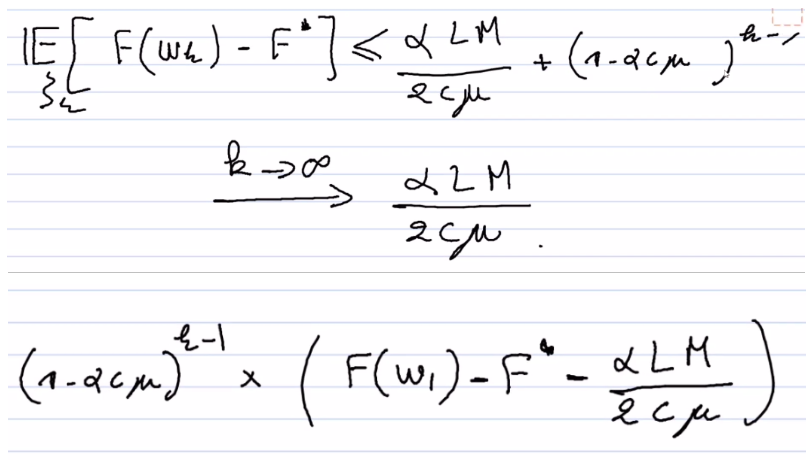 𝔼_{ξ_k}[ F(w_k) - F^* ] ≤ \frac{α L M}{2 c μ} + (1 - α c μ )^{k-1}
\xrightarrow{k → ∞} \frac{α L M}{2 c μ} .
(1 - α c μ)^{k-1} × ( F(w_1) - F^* - \frac{α L M}{2 c μ} )